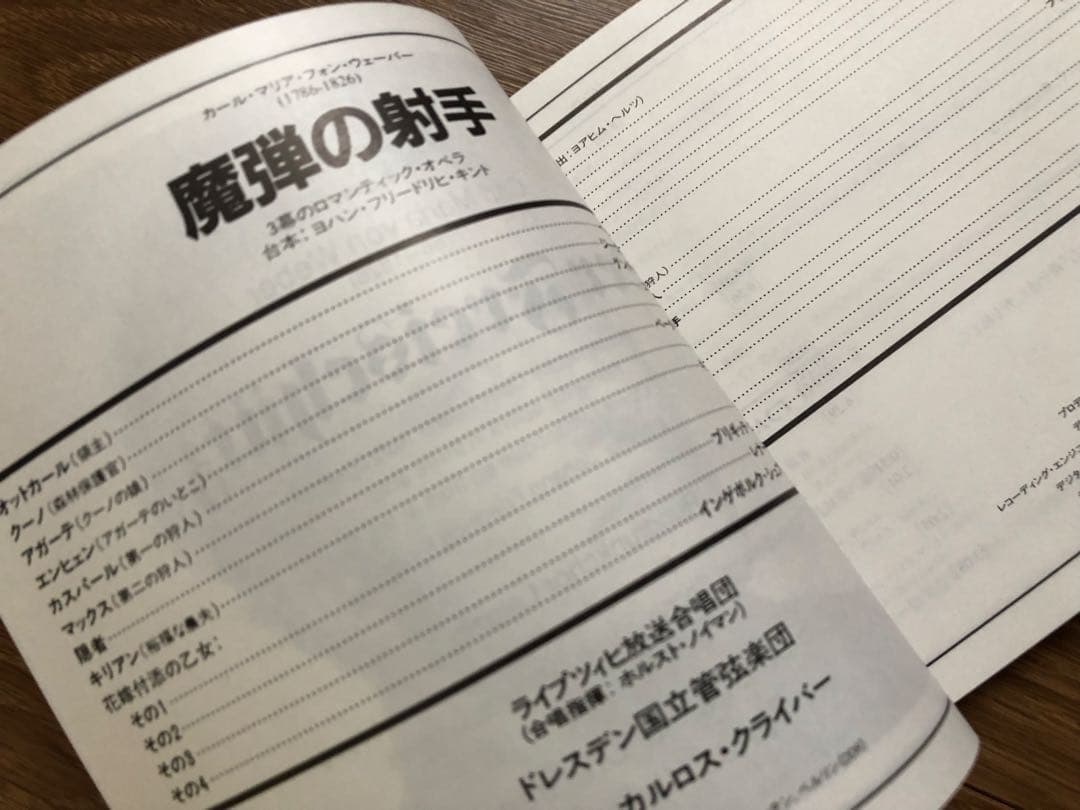 カール・マリア・フォン・ウェーバー
(1786-1826)
魔弾の射手
3幕のロマンティック・オペラ
台本：ヨハン・フリードリヒ・キント
オットカール(領主)
クーノ(森林保護官)
アガーテ(クーノの娘)
エンヒェン(アガーテのいとこ)
カスパール(第一の狩人)
マックス(第二の狩人)
隠者
キリアン(裕福な農夫)
花嫁付添の乙女：
その1
その2
その3
その4
ペーター
ブリギッ
インゲボルク・シュ
ライプツィヒ放送合唱団
(合唱指揮：ホルスト・ノイマン)
ドレスデン国立管弦楽団
カルロス・クライバー
出 ヨアヒム・ヘルツ)
狩人)
プロデ
レコーディング・エンジニ
デジタ